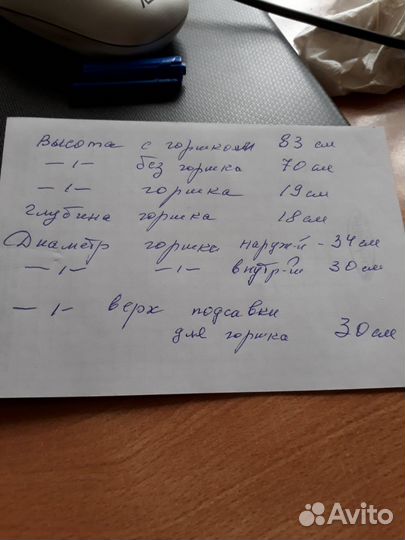 Высота с горшком 83 см
—〃— без горшка 70 см
—〃— горшка 19 см
Глубина горшка 18 см
Диаметр горшка наруж-й - 34 см
—〃— —〃— внутр-й 30 см
—〃— верх подсавки
для горшка 30 см
Avito